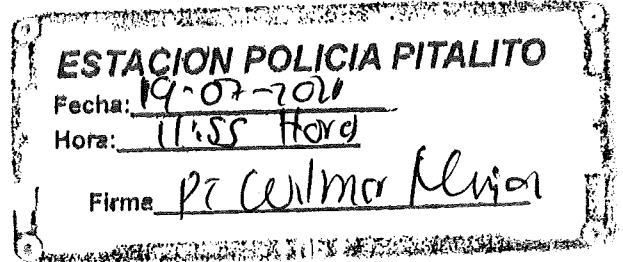 ESTACION POLICIA PITALITO
Fecha: 19-07-2021
Hora: 11:55 Hora
Firma PT Wilmer